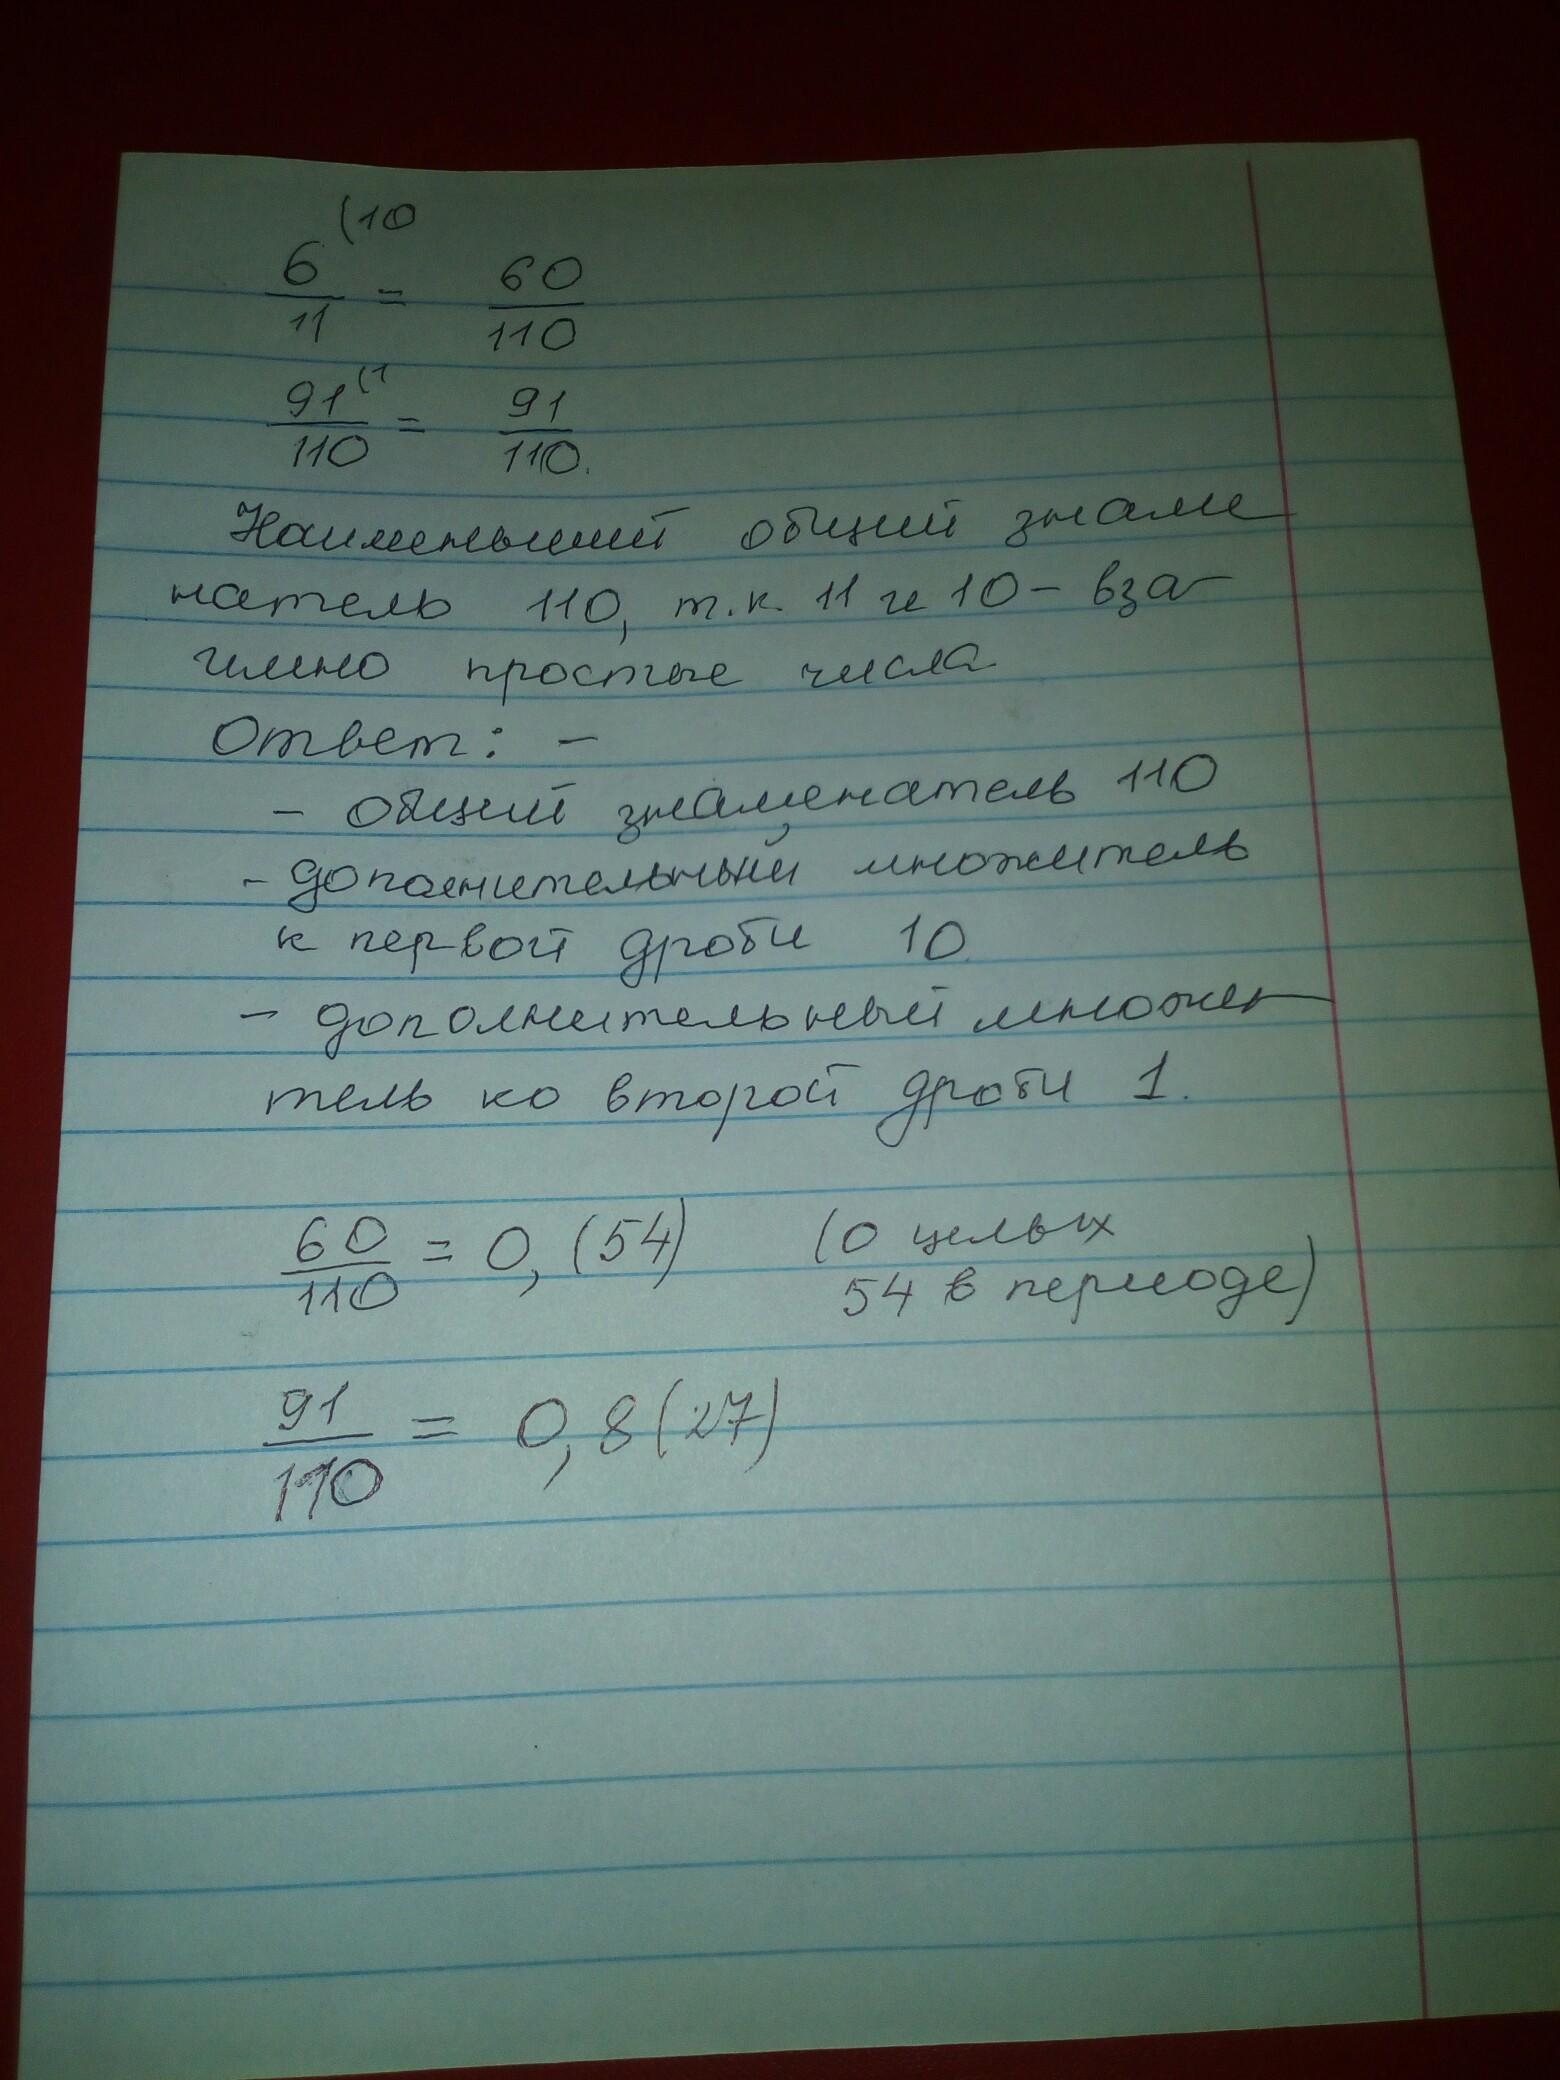 6/11 (10 = 60/110
91/110 (1 = 91/110.
Наименьший общий знаме
натель 110, т.к. 11 и 10 - вза-
имно простые числа
Ответ: -
- общий знаменатель 110
- дополнительный множитель
к первой дроби 10.
- дополнительный множи-
тель ко второй дроби 1.
60/110 = 0,(54) (0 целых
54 в периоде)
91/110 = 0,8(27)